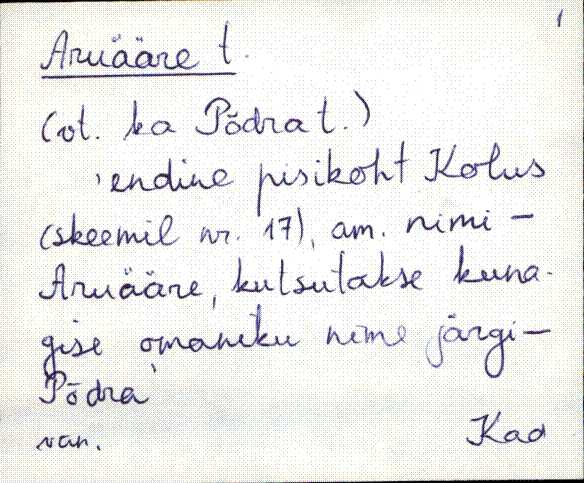 1
Aruääre t.
(vt. ka Põdra t.)
'endine pisikoht Kolus
(skeemil nr. 17), am. nimi –
Aruääre, kutsutakse kuna-
gise omaniku nime järgi –
Põdra'
van. Kad